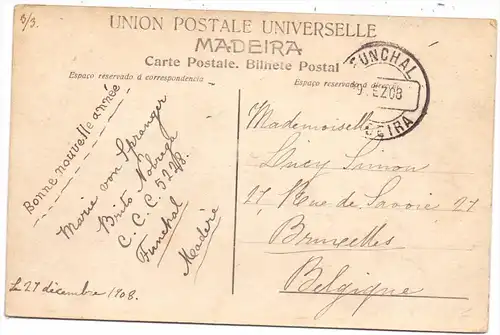 3/3.
UNION POSTALE UNIVERSELLE
MADEIRA
Carte Postale. Bilhete Postal
Espaço reservado á correspondencia
Espaço reservado á
FUNCHAL
EZ08
DEIRA
Bonne nouvelle année
Marie von Sprenger
Brito Nobrega
C. C. C. 522/B.
Funchal
Madère
Le 27 décembre 1908.
Mademoiselle
Lucy Simon
27 Rue de Savoie 27
Bruxelles
Belgique